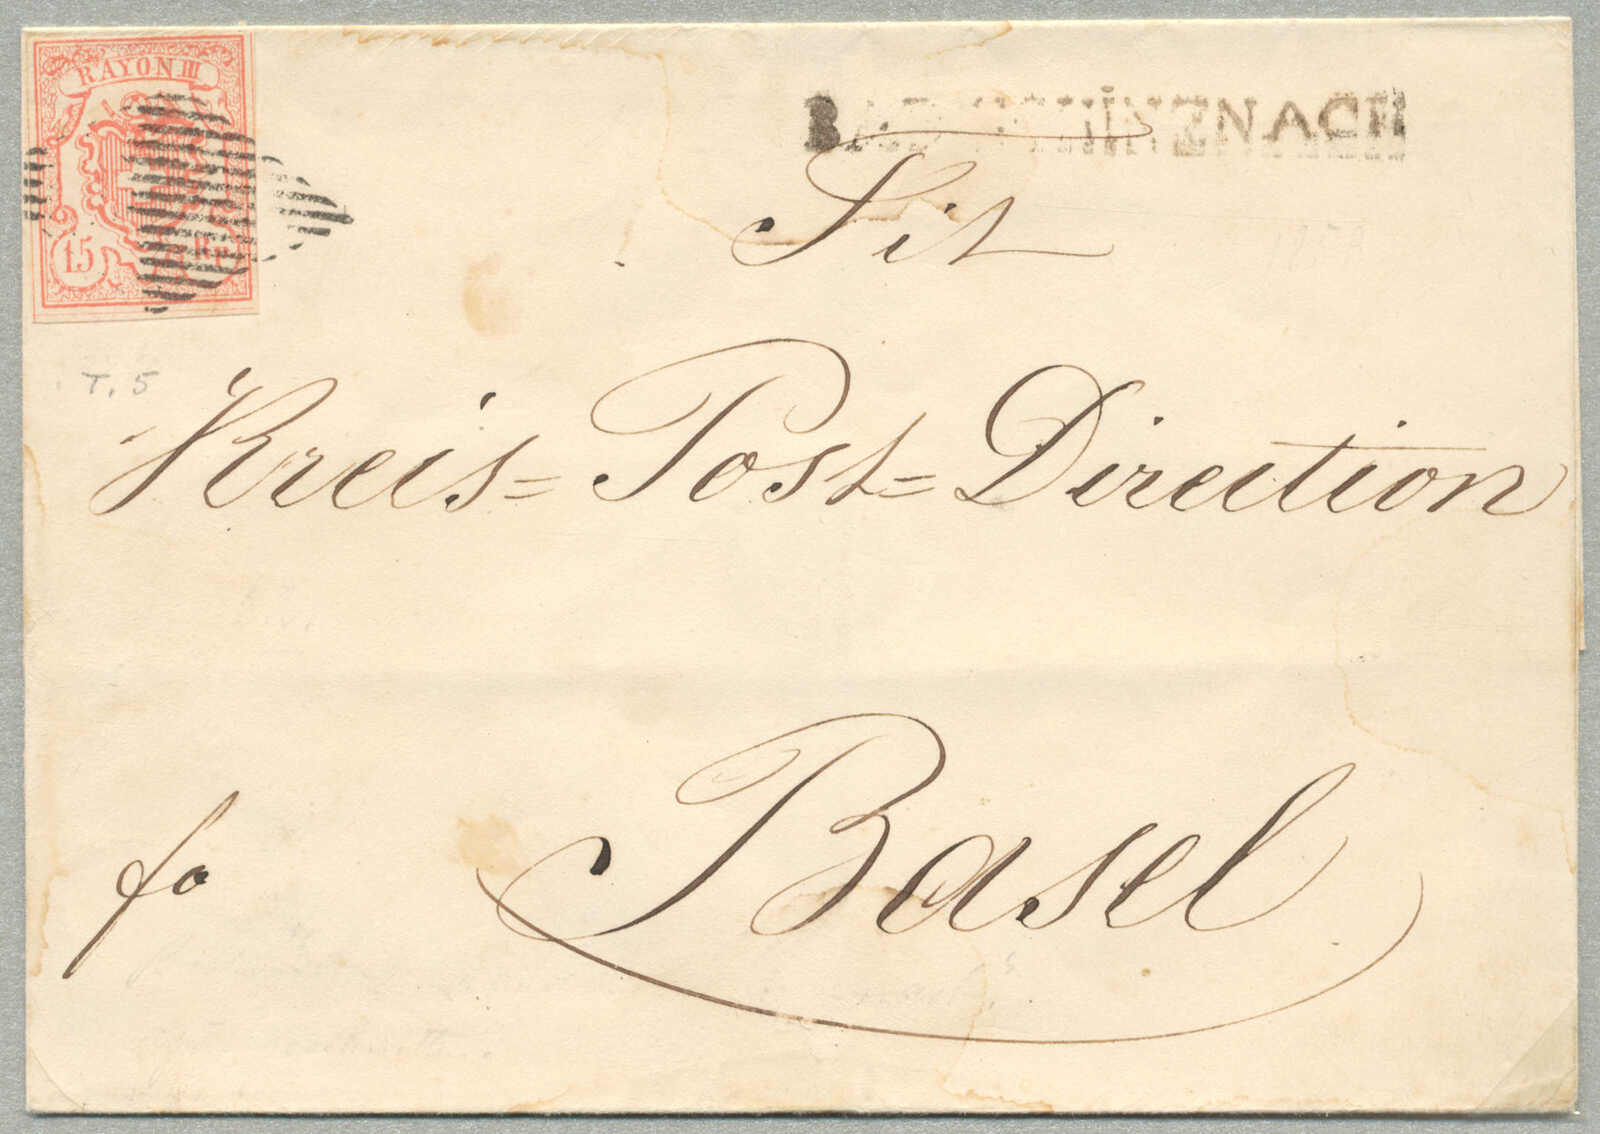 RAYON III
15 Rp.
BAD SCHINZNACH
Tit
T. 5
Kreis=Post=Direction
fo Basel